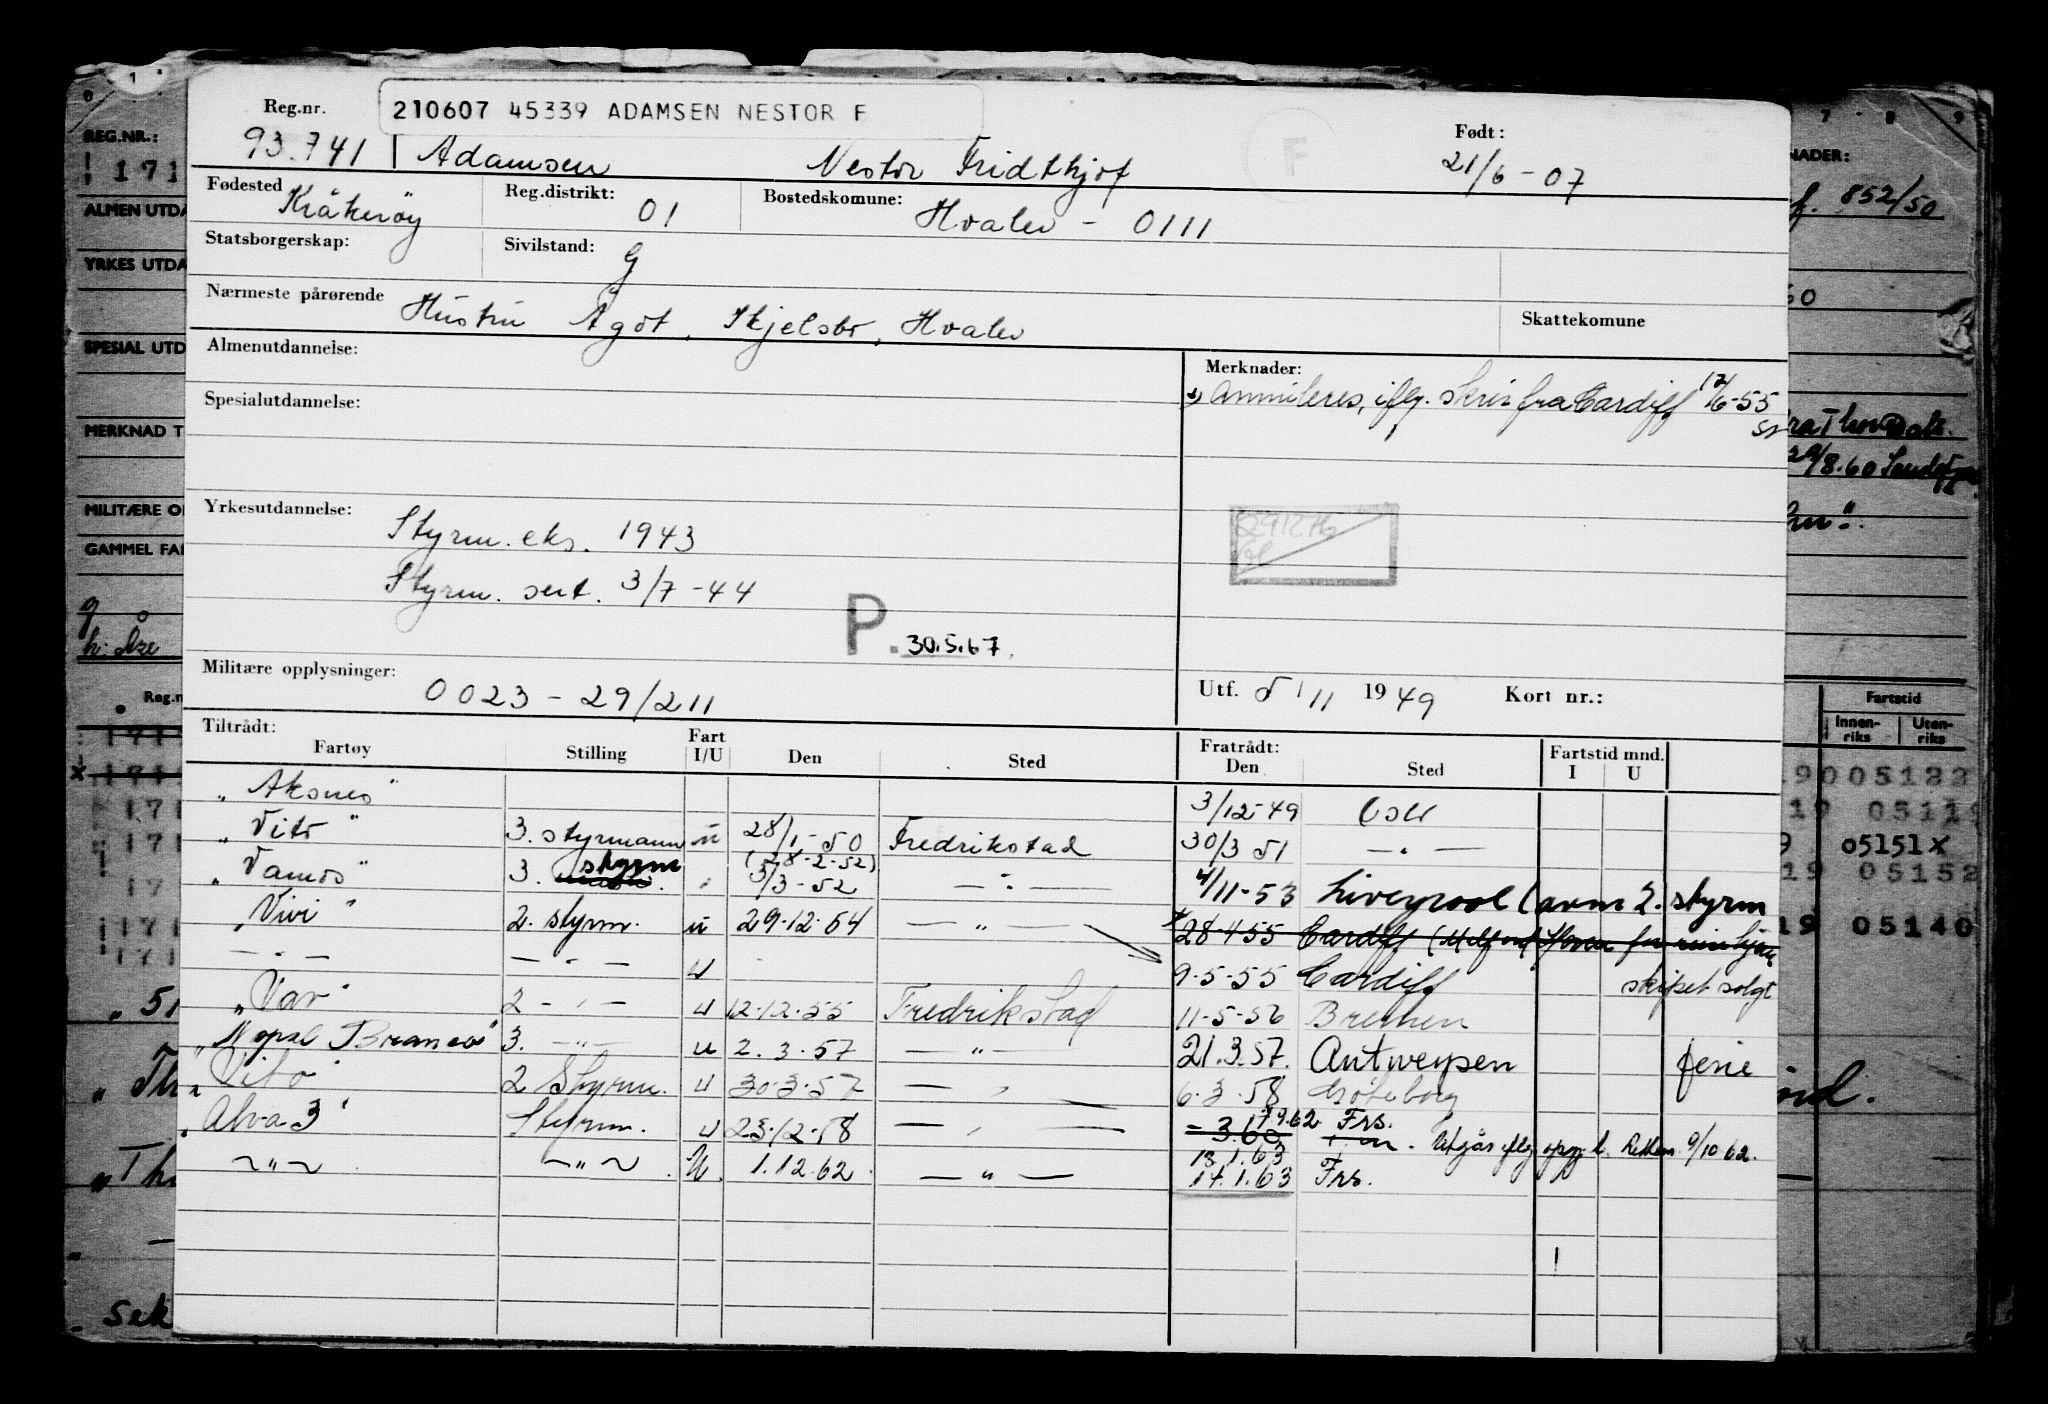 Reg.nr. 210607 45339 ADAMSEN NESTOR F F Født:
93.741 Adamsen Nestor Fridthjof 21/6-07
Fødested Kråkerøy Reg.distrikt: 01 Bostedskomune: Hvaler - 0111
Statsborgerskap: Sivilstand: G
Nærmeste pårørende Hustru Ågot, Skjelsbo, Hvaler Skattekomune
Almenutdannelse: Merknader:
annuleres, iflg. skriv fra Cardiff 12/6-55
Spesialutdannelse:
Yrkesutdannelse: Styrm. eks. 1943
Styrm. sert. 3/7-44
P. 30.5.67.
Militære opplysninger: 0023-29/211 Utf. 5/11 1949 Kort nr.:
Tiltrådt: Fart Fratrådt: Fartstid mnd.
Fartøy Stilling I/U Den Sted Den Sted I U
"Aksnes" 3/12-49 Oslo
"Vito" 3. styrmann u 28/1-50 Fredrikstad 30/3 51 — " —
(28-2-52)
"Vamos" 3. styrm " 3/3-52 — " — 4/11-53 Liverpool (avm 2. styrm
"Vivi" 2. styrm. u 29.12.54 — " — 28-4-55 Cardiff (Milford Haven
— " — — " — u 9-5-55 Cardiff skipet solgt
"Var" 2 — " — u 12.12.55 Fredrikstad 11-5-56 Bremen
"Nopal Branco" 3. — " — u 2.3.57 — " — 21.3.57. Antwerpen ferie
"Vito" 2 Styrm. u 30.3.57 — " — 6.3.58 Göteborg
"Alva 3" Styrm. u 23.12.58 — " — 3.60 17.9.62 Frs. Utgår iflg oppg. f. Rederi 9/10 62.
13.1.63
~ " ~ ~ " ~ U. 1.12.62 — " — 14.1.63 Frs.
REG.NR.:
171
ALMEN UTDA
YRKES UTDA
SPESIAL UTD
MERKNAD T
MILITÆRE O
GAMMEL FA
g
Reg.n
"Th
"Th
Sek
7 8 9
NADER:
f. 852/50
60
29/8.60 Sandefj
Fartstid
Innen-riks Uten-riks
19005122
19 0511
9 05151X
19 05152
19 05140